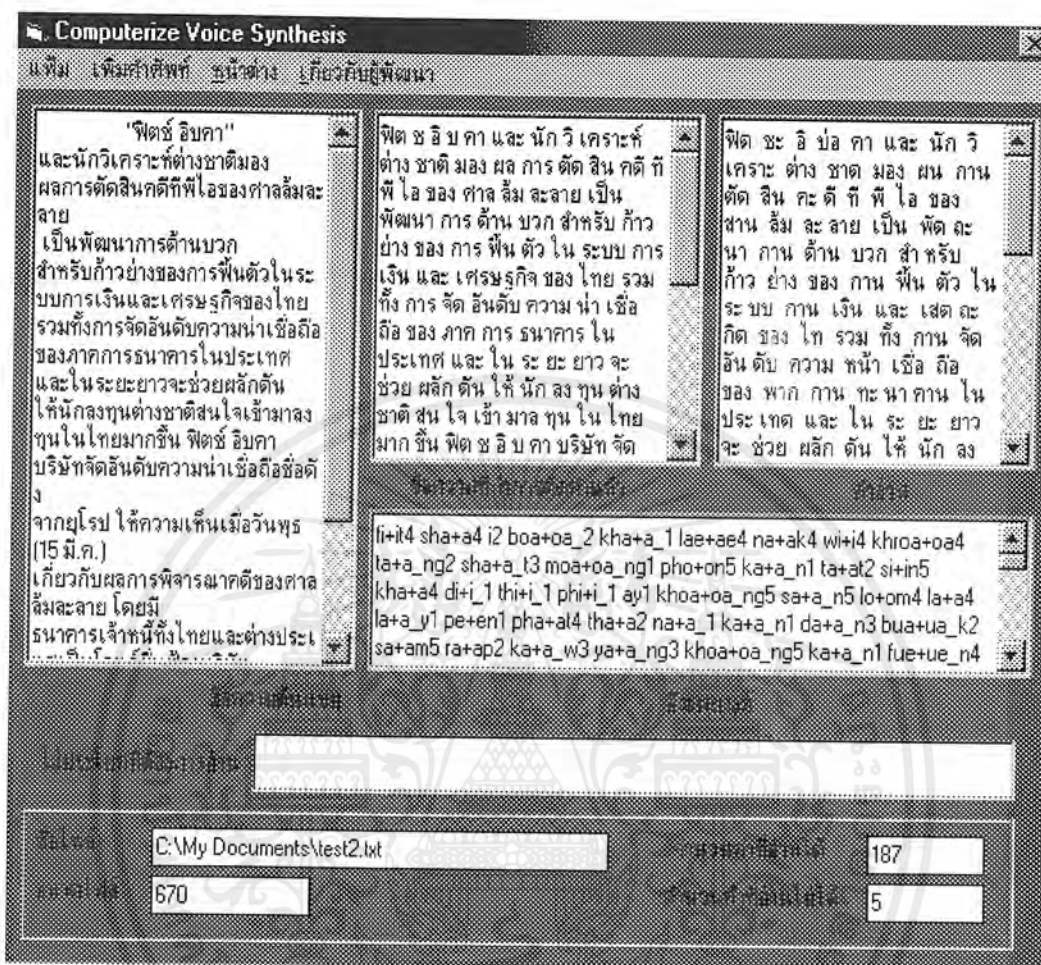 Computerize Voice Synthesis
แฟ้ม เพิ่มคำศัพท์ หน้าต่าง เกี่ยวกับผู้พัฒนา
"ฟิตช์ อิบคา"
และนักวิเคราะห์ต่างชาติมอง
ผลการตัดสินคดีทีพีไอของศาลล้มละ
ลาย
เป็นพัฒนาการด้านบวก
สำหรับก้าวย่างของการฟื้นตัวในระ
บบการเงินและเศรษฐกิจของไทย
รวมทั้งการจัดอันดับความน่าเชื่อถือ
ของภาคการธนาคารในประเทศ
และในระยะยาวจะช่วยผลักดัน
ให้นักลงทุนต่างชาติสนใจเข้ามาลง
ทุนในไทยมากขึ้น ฟิตช์ อิบคา
บริษัทจัดอันดับความน่าเชื่อถือชื่อดั
ง
จากยุโรป ให้ความเห็นเมื่อวันพุธ
(15 มี.ค.)
เกี่ยวกับผลการพิจารณาคดีของศาล
ล้มละลาย โดยมี
ธนาคารเจ้าหนี้ทั้งไทยและต่างประเ
ฟิต ช อิ บ คา และ นัก วิ เคราะห์
ต่าง ชาติ มอง ผล การ ตัด สิน คดี ที
พี ไอ ของ ศาล ล้ม ละลาย เป็น
พัฒนา การ ด้าน บวก สำหรับ ก้าว
ย่าง ของ การ ฟื้น ตัว ใน ระบบ การ
เงิน และ เศรษฐกิจ ของ ไทย รวม
ทั้ง การ จัด อันดับ ความ น่า เชื่อ
ถือ ของ ภาค การ ธนาคาร ใน
ประเทศ และ ใน ระ ยะ ยาว จะ
ช่วย ผลัก ดัน ให้ นัก ลง ทุน ต่าง
ชาติ สน ใจ เข้า มาล ทุน ใน ไทย
มาก ขึ้น ฟิต ช อิ บ คา บริษัท จัด
ฟิด ชะ อิ บ่อ คา และ นัก วิ
เคราะ ต่าง ชาด มอง ผน กาน
ตัด สิน คะ ดี ที พี ไอ ของ
สาน ล้ม ละ ลาย เป็น พัด ถะ
นา กาน ด้าน บวก สำ หรับ
ก้าว ย่าง ของ กาน ฟื้น ตัว ใน
ระ บบ กาน เงิน และ เสด ถะ
กิด ของ ไท รวม ทั้ง กาน จัด
อัน ดับ ความ หน้า เชื่อ ถือ
ของ พาก กาน ทะ นา คาน ใน
ประ เทด และ ใน ระ ยะ ยาว
จะ ช่วย ผลัก ดัน ให้ นัก ลง
คำอ่าน
fi+it4 sha+a4 i2 boa+oa_2 kha+a_1 lae+ae4 na+ak4 wi+i4 khroa+oa4
ta+a_ng2 sha+a_t3 moa+oa_ng1 pho+on5 ka+a_n1 ta+at2 si+in5
kha+a4 di+i_1 thi+i_1 phi+i_1 ay1 khoa+oa_ng5 sa+a_n5 lo+om4 la+a4
la+a_y1 pe+en1 pha+at4 tha+a2 na+a_1 ka+a_n1 da+a_n3 bua+ua_k2
sa+am5 ra+ap2 ka+a_w3 ya+a_ng3 khoa+oa_ng5 ka+a_n1 fue+ue_n4
C:\My Documents\test2.txt
187
670
5